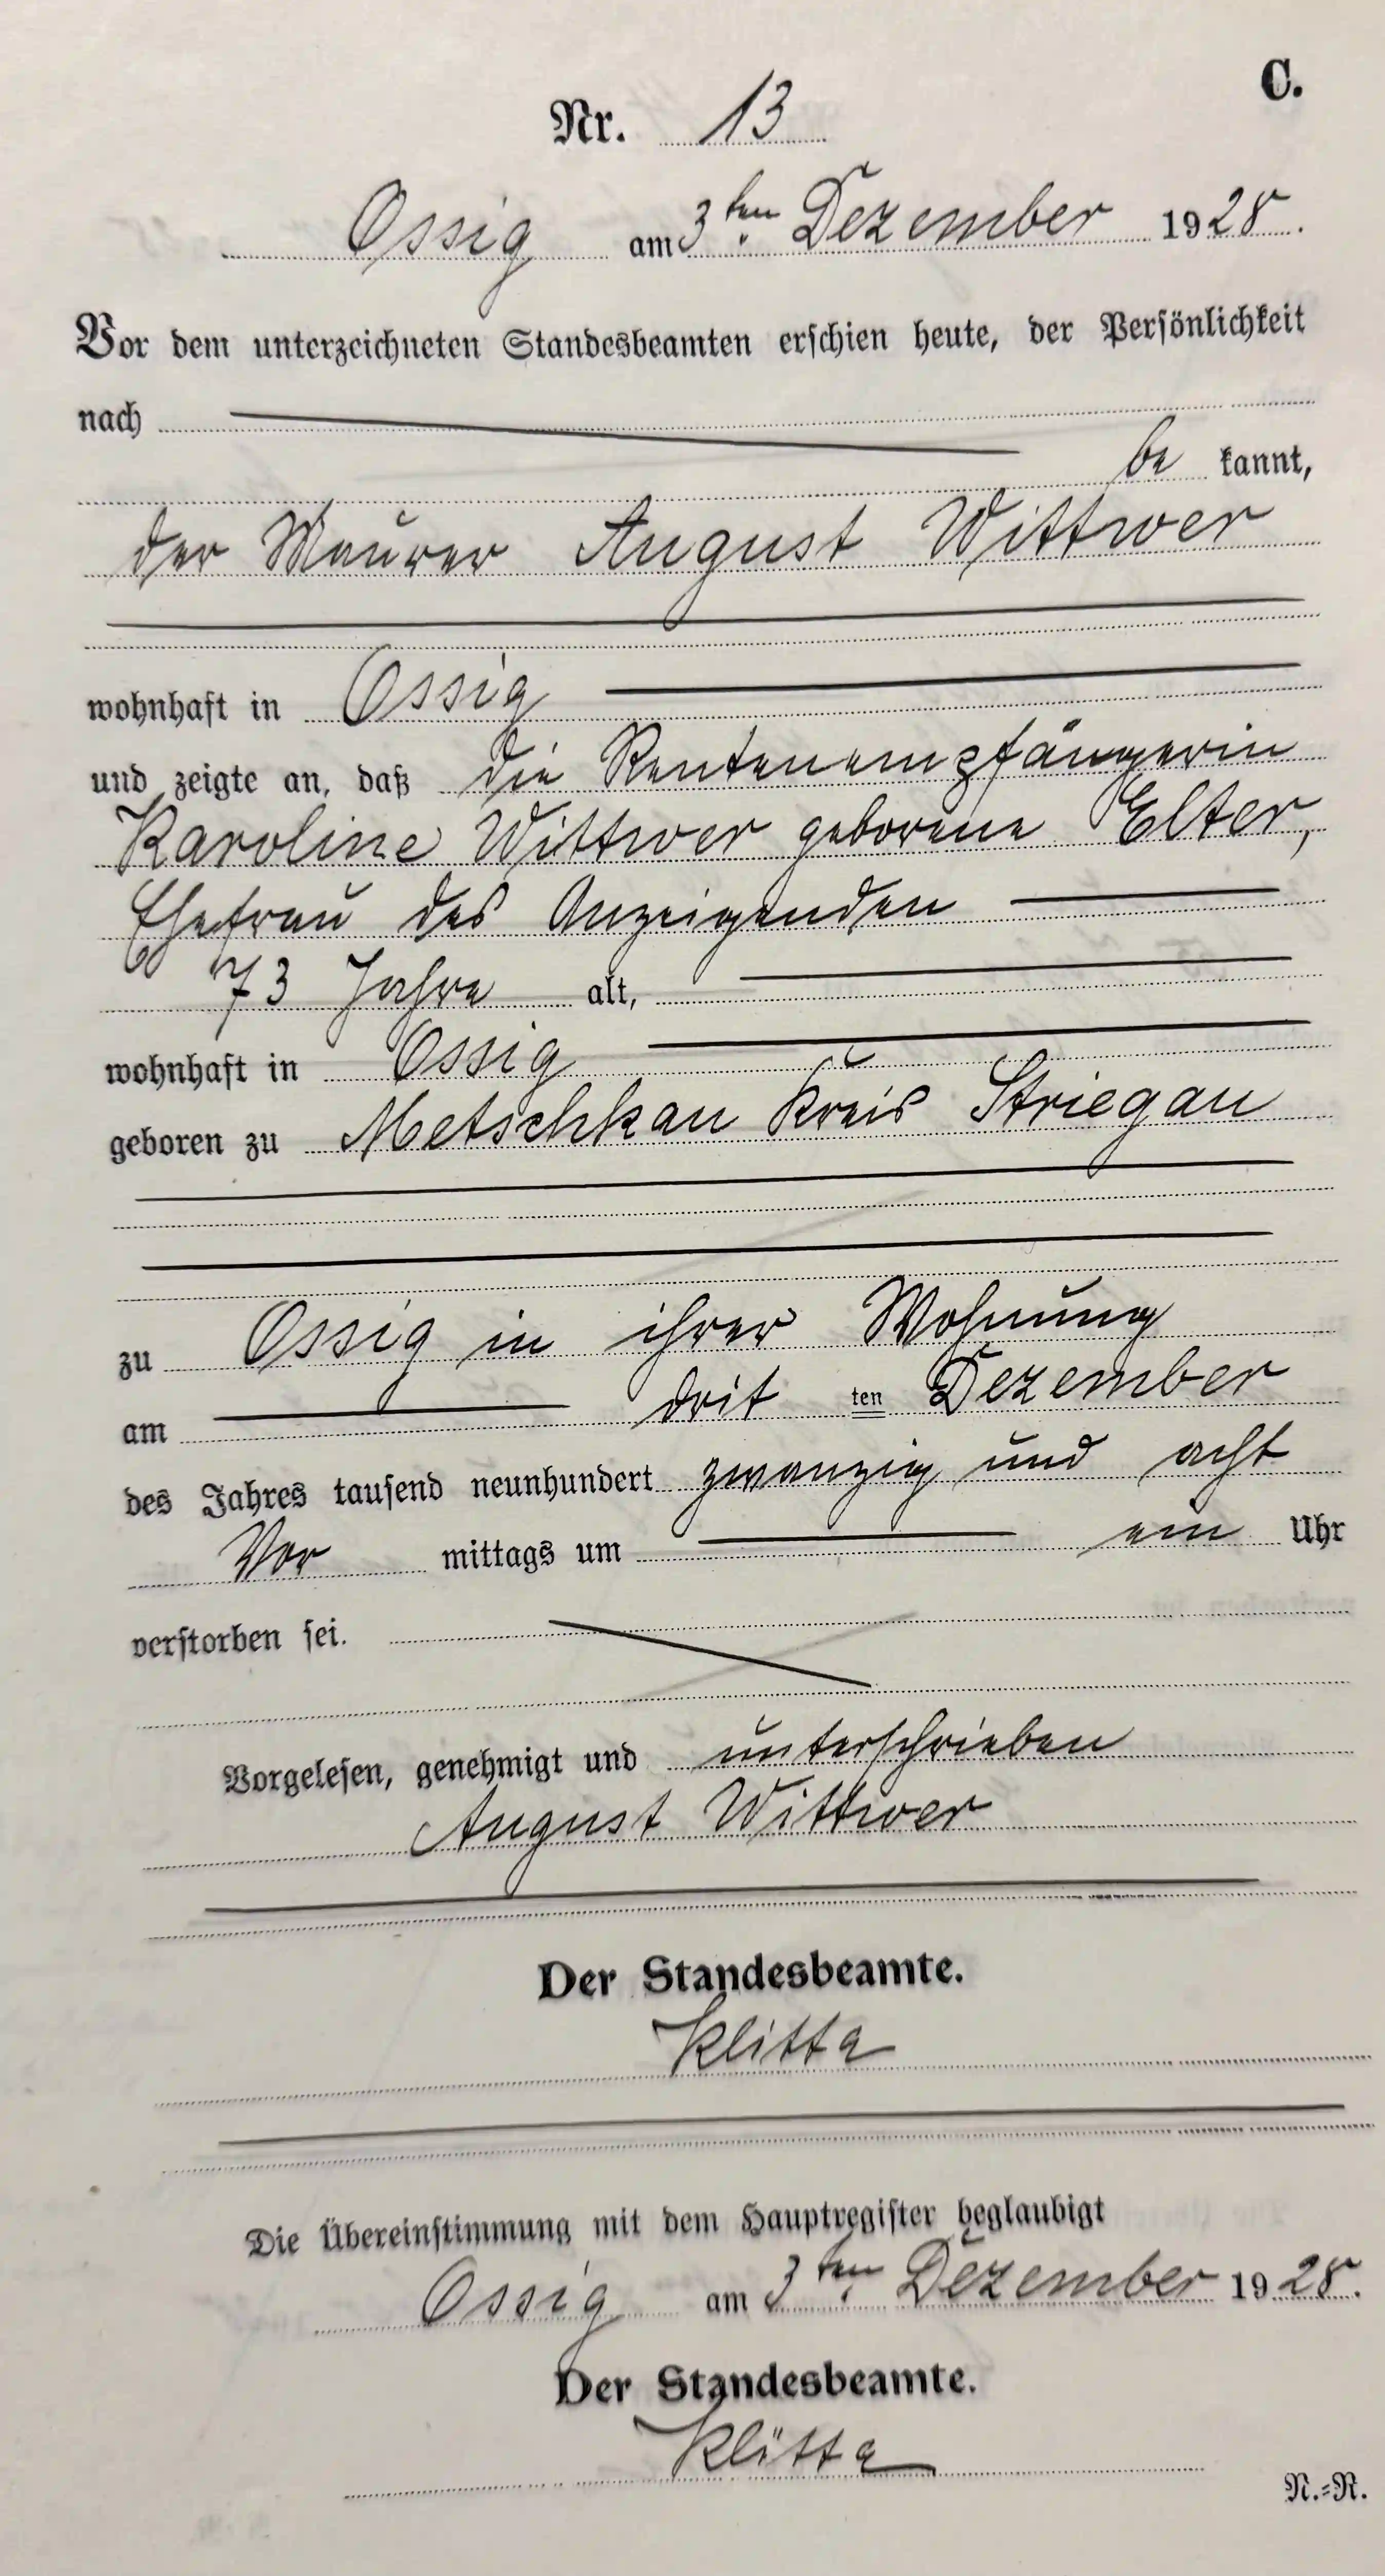 C.
Nr. 13
Ossig am 3ten Dezember 1928.
Vor dem unterzeichneten Standesbeamten erschien heute, der Persönlichkeit
nach
be kannt,
der Maurer August Wittwer
wohnhaft in Ossig
und zeigte an, daß die Rentenempfängerin
Karoline Wittwer geborene Elter,
Ehefrau des Anzeigenden
73 Jahre alt,
wohnhaft in Ossig
geboren zu Metschkau Kreis Striegau
zu Ossig in ihrer Wohnung
am drit ten Dezember
des Jahres tausend neunhundert zwanzig und acht
Vor mittags um ein Uhr
verstorben sei.
Vorgelesen, genehmigt und unterschrieben
August Wittwer
Der Standesbeamte.
Klitta
Die Übereinstimmung mit dem Hauptregister beglaubigt
Ossig am 3ten Dezember 1928.
Der Standesbeamte.
Klitta
N.=R.